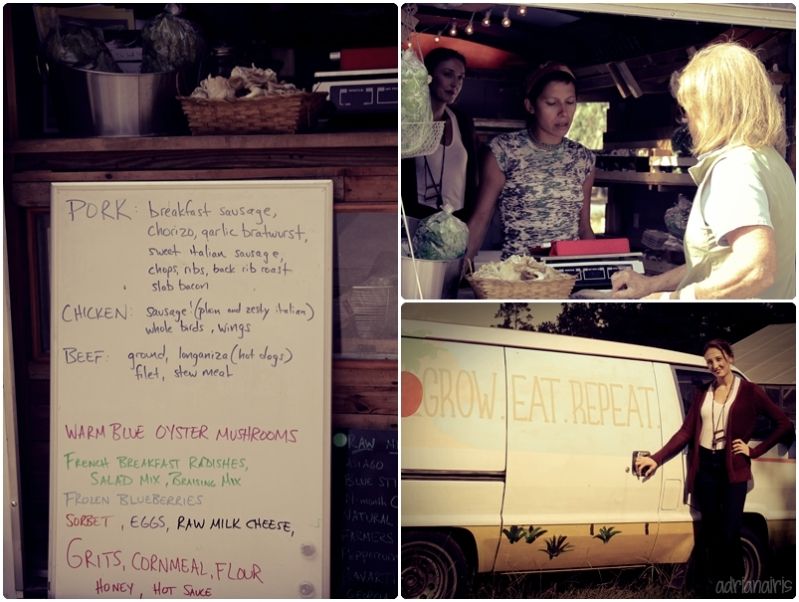 PORK: breakfast sausage,
chorizo, garlic bratwurst,
sweet italian sausage,
chops, ribs, back rib roast
slab bacon
CHICKEN: sausage (plain and zesty italian)
whole birds, wings
BEEF: ground, longaniza (hot dogs)
filet, stew meat
WARM BLUE OYSTER MUSHROOMS
FRENCH BREAKFAST RADISHES,
SALAD MIX, BRAISING MIX
FROZEN BLUEBERRIES
SORBET, EGGS, RAW MILK CHEESE,
GRITS, CORNMEAL, FLOUR
HONEY, HOT SAUCE
RAW
ASIAGO
BLUE
NATURAL
FARMERS
GROW. EAT. REPEAT.
adrianairis